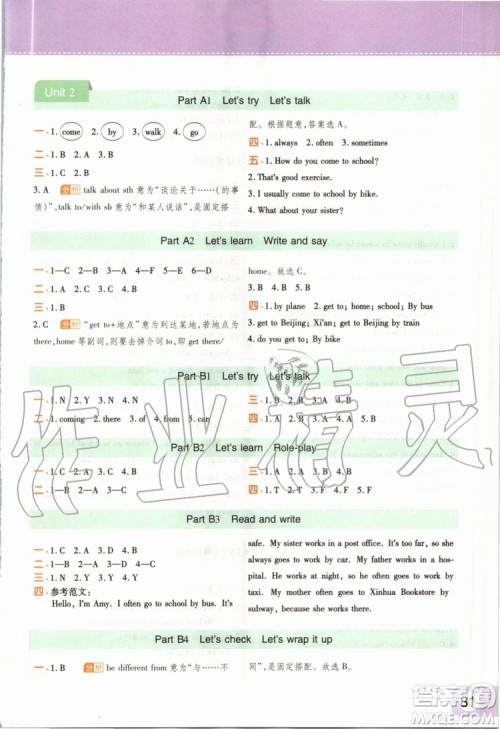 Unit 2
Part A1 Let's try Let's talk
一、1. come 2. by 3. walk 4. go
二、1. B 2. A 3. B 4. A
三、1. B 2. A
3. A 分析 talk about sth 意为“谈论关于……(的事
情)”,talk to/with sb 意为“和某人说话”,是固定搭
配。根据题意,答案选 A。
四、1. always 2. often 3. sometimes
五、1. How do you come to school?
2. That's good exercise.
3. I usually come to school by bike.
4. What about your sister?
Part A2 Let's learn Write and say
一、1—C 2—B 3—A 4—F 5—E 6—D
二、1. B
2. C 分析 “get to+地点”意为到达某地,若地点为
there, home 等副词,则要去掉介词 to,即 get there/
home。故选 C。
3. B 4. B 5. A
四、1. by plane 2. from; to school; By bus
3. get to Beijing; Xi'an; get to Beijing
4. get to; do; By bike
Part B1 Let's try Let's talk
一、1. B 2. A 3. A 4. B
二、1. coming 2. there 3. of 4. from 5. car
三、1. C 2. B 3. A 4. B
四、1. B 2. A 3. C
Part B2 Let's learn Role-play
一、1. C 2. A 3. B 4. B
二、1—C 2—D 3—A 4—B
三、1. A 2. A 3. A 4. B
四、1. T 2. F 3. T 4. T
Part B3 Read and write
一、1. C 2. A 3. D 4. B
二、1. D 2. C 3. A 4. B
三、1. N 2. Y 3. Y 4. N
四、参考范文:
Hello, I'm Amy. I often go to school by bus. It's
safe. My sister works in a post office. She is
always going to work by car. My father works in a hos-
pital. My father often goes to work by
taxi. My mother works in Xinhua Bookstore by
subway, sometimes she goes to work on foot.
Part B4 Let's check Let's wrap it up
一、1. B 分析 be different from 意为“与……不
同”,是固定搭配。故选 A。
81
作业精灵
答案圈
MXQE.COM